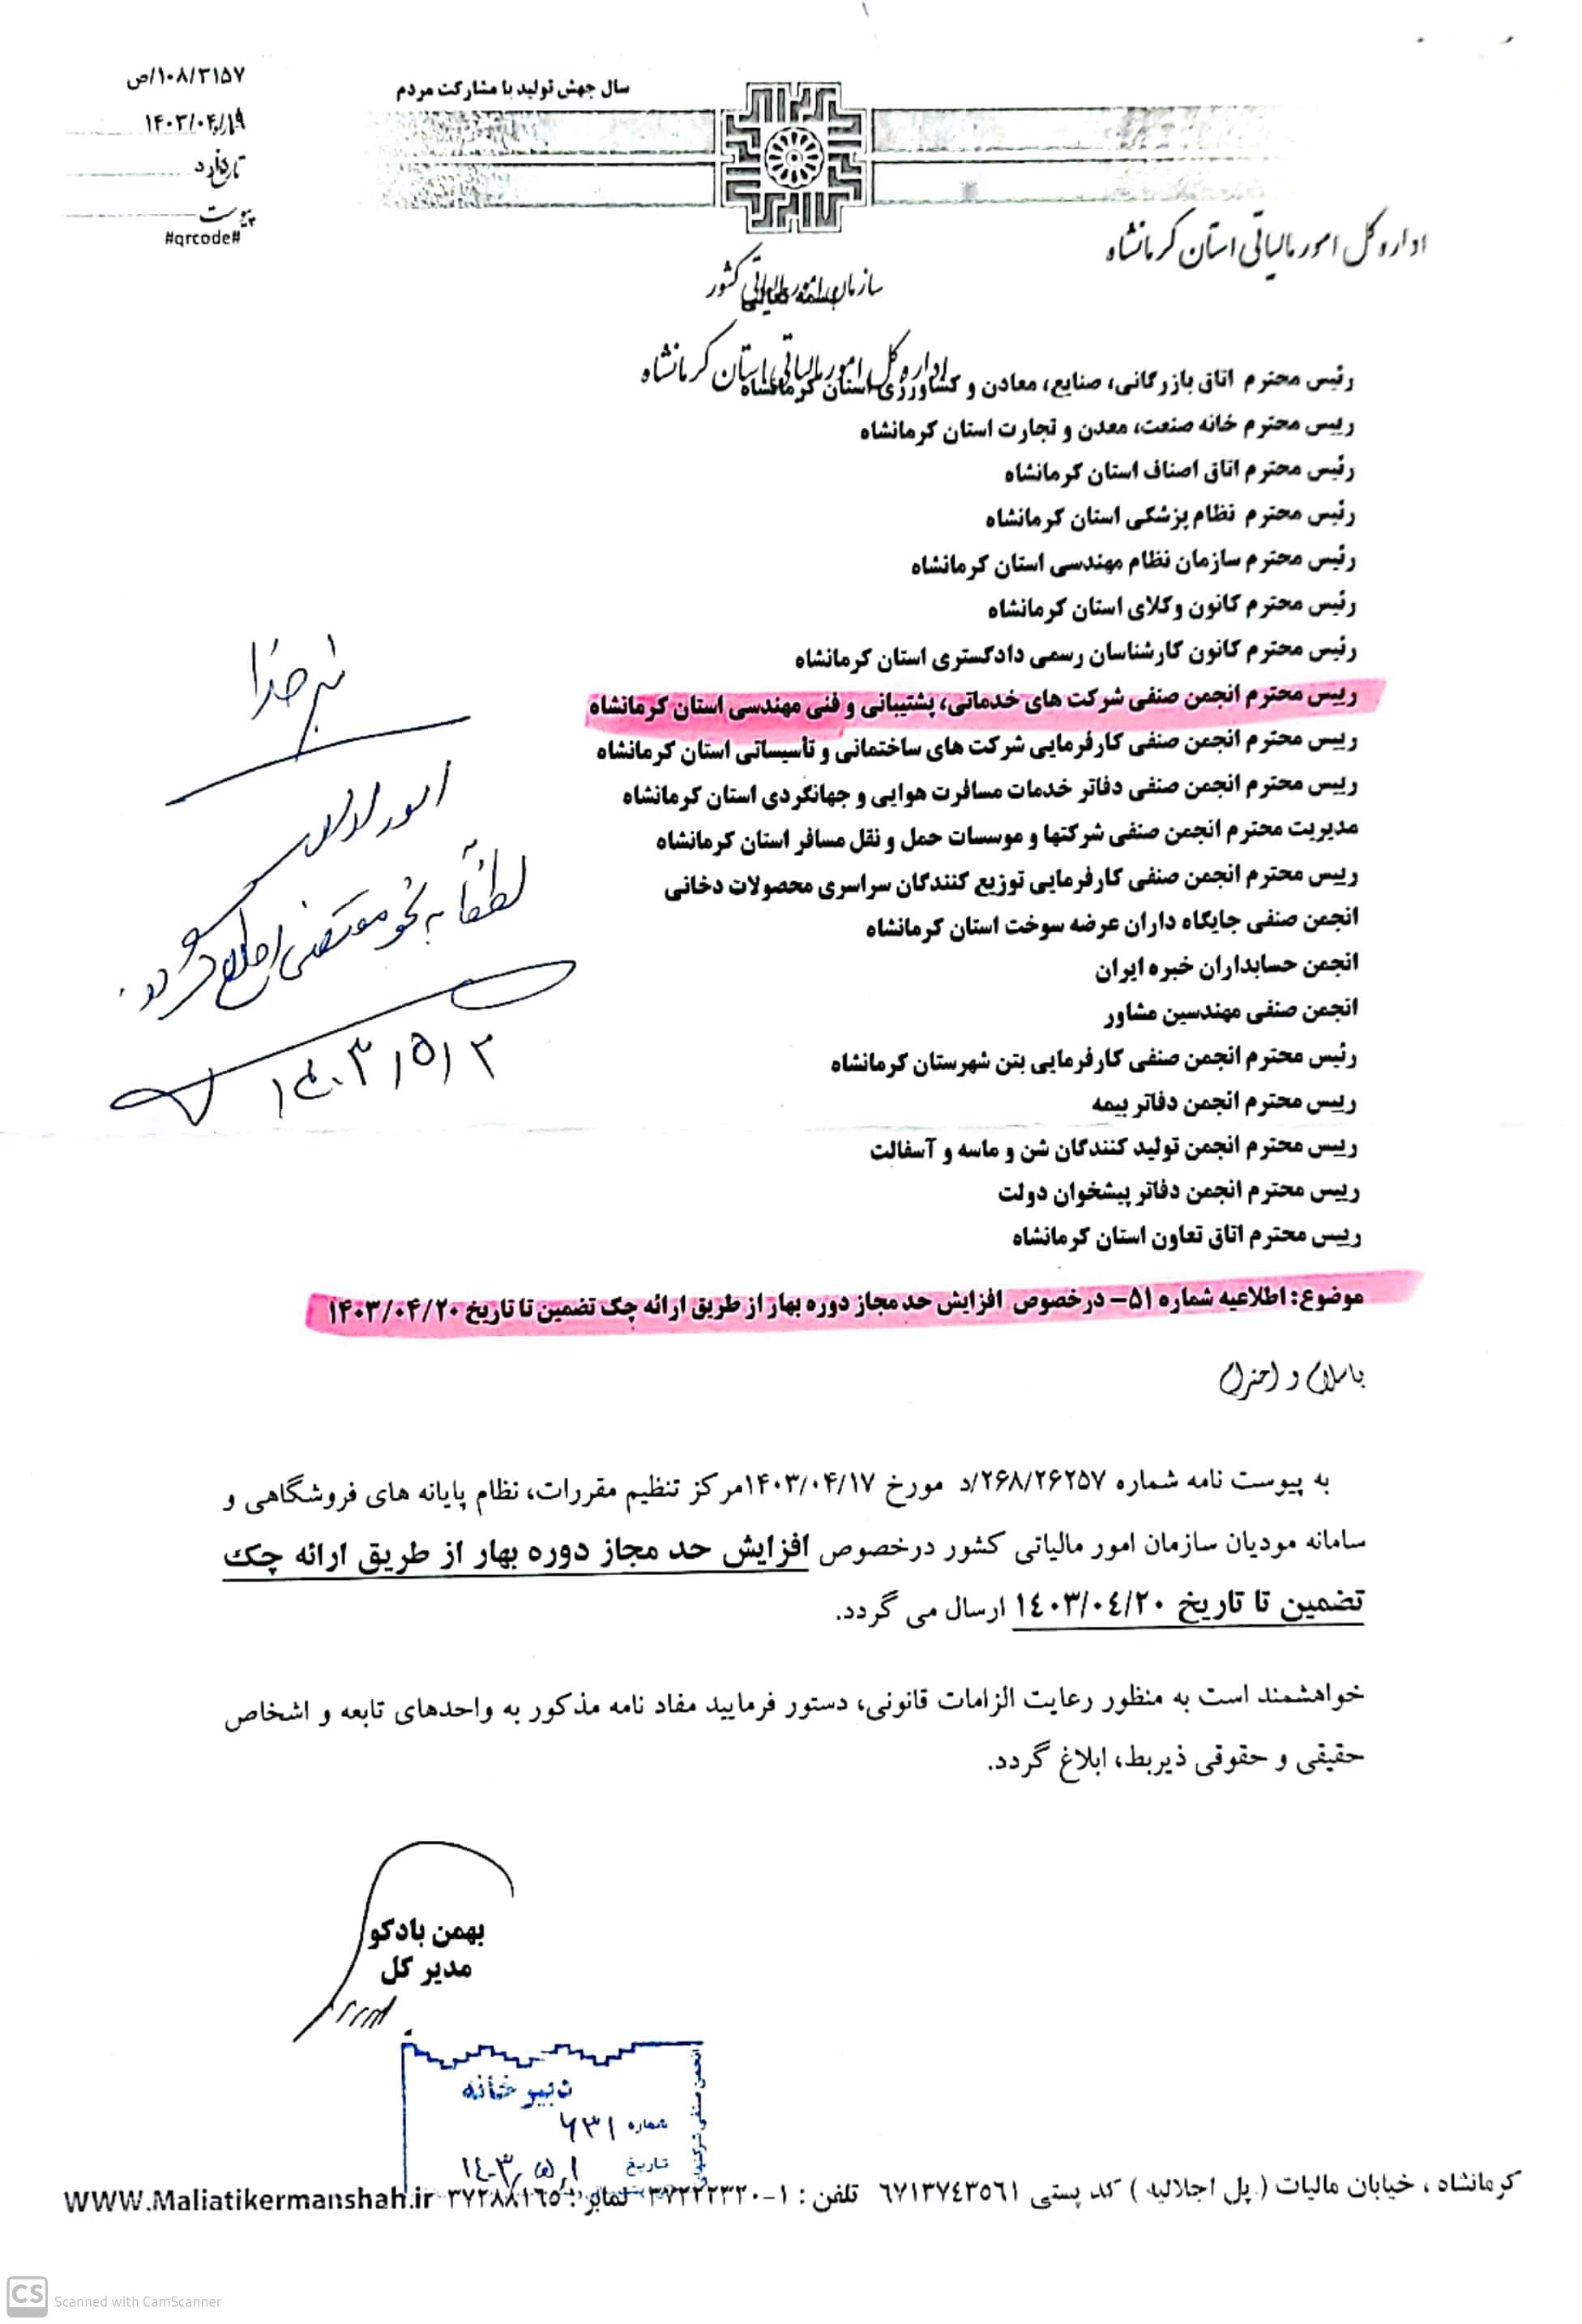 ۱۰۸/۳۱۵۷/ص
۱۴۰۳/۰۴/۱۹
تاریخ
ندارد
پیوست
#qrcode#
سال جهش تولید با مشارکت مردم
اداره کل امور مالیاتی استان کرمانشاه
سازمان امور مالیاتی کشور
بسمه تعالی
اداره کل امور مالیاتی استان کرمانشاه
رئیس محترم اتاق بازرگانی، صنایع، معادن و کشاورزی استان کرمانشاه
رییس محترم خانه صنعت، معدن و تجارت استان کرمانشاه
رئیس محترم اتاق اصناف استان کرمانشاه
رئیس محترم نظام پزشکی استان کرمانشاه
رئیس محترم سازمان نظام مهندسی استان کرمانشاه
رئیس محترم کانون وکلای استان کرمانشاه
رئیس محترم کانون کارشناسان رسمی دادگستری استان کرمانشاه
رییس محترم انجمن صنفی شرکت های خدماتی، پشتیبانی و فنی مهندسی استان کرمانشاه
رییس محترم انجمن صنفی کارفرمایی شرکت های ساختمانی و تأسیساتی استان کرمانشاه
رییس محترم انجمن صنفی دفاتر خدمات مسافرت هوایی و جهانگردی استان کرمانشاه
مدیریت محترم انجمن صنفی شرکتها و موسسات حمل و نقل مسافر استان کرمانشاه
رییس محترم انجمن صنفی کارفرمایی توزیع کنندگان سراسری محصولات دخانی
انجمن صنفی جایگاه داران عرضه سوخت استان کرمانشاه
انجمن حسابداران خبره ایران
انجمن صنفی مهندسین مشاور
رئیس محترم انجمن صنفی کارفرمایی بتن شهرستان کرمانشاه
رییس محترم انجمن دفاتر بیمه
رییس محترم انجمن تولید کنندگان شن و ماسه و آسفالت
رییس محترم انجمن دفاتر پیشخوان دولت
رییس محترم اتاق تعاون استان کرمانشاه
بنام خدا
امور
لطفاً به نحو مقتضی اطلاع
۱۴۰۳/۵/۲
موضوع: اطلاعیه شماره ۵۱– درخصوص افزایش حد مجاز دوره بهار از طریق ارائه چک تضمین تا تاریخ ۱۴۰۳/۰۴/۲۰
باسلام و احترام
به پیوست نامه شماره ۲۶۸/۲۶۲۵۷/د مورخ ۱۴۰۳/۰۴/۱۷مرکز تنظیم مقررات، نظام پایانه های فروشگاهی و
سامانه مودیان سازمان امور مالیاتی کشور درخصوص افزایش حد مجاز دوره بهار از طریق ارائه چک
تضمین تا تاریخ ۱۴۰۳/۰۴/۲۰ ارسال می گردد.
خواهشمند است به منظور رعایت الزامات قانونی، دستور فرمایید مفاد نامه مذکور به واحدهای تابعه و اشخاص
حقیقی و حقوقی ذیربط، ابلاغ گردد.
بهمن بادکو
مدیر کل
دبیرخانه
شماره ۶۳۱
تاریخ ۱۴۰۳/۵/۱
انجمن صنفی شرکتهای
کرمانشاه ، خیابان مالیات ( پل اجلالیه ) کد پستی ۶۷۱۳۷۴۳۵۶۱ تلفن : ۱-۳۷۲۲۲۳۲۰ نمابر : ۳۷۲۸۸۱۶۵ WWW.Maliatikermanshah.ir
CS Scanned with CamScanner